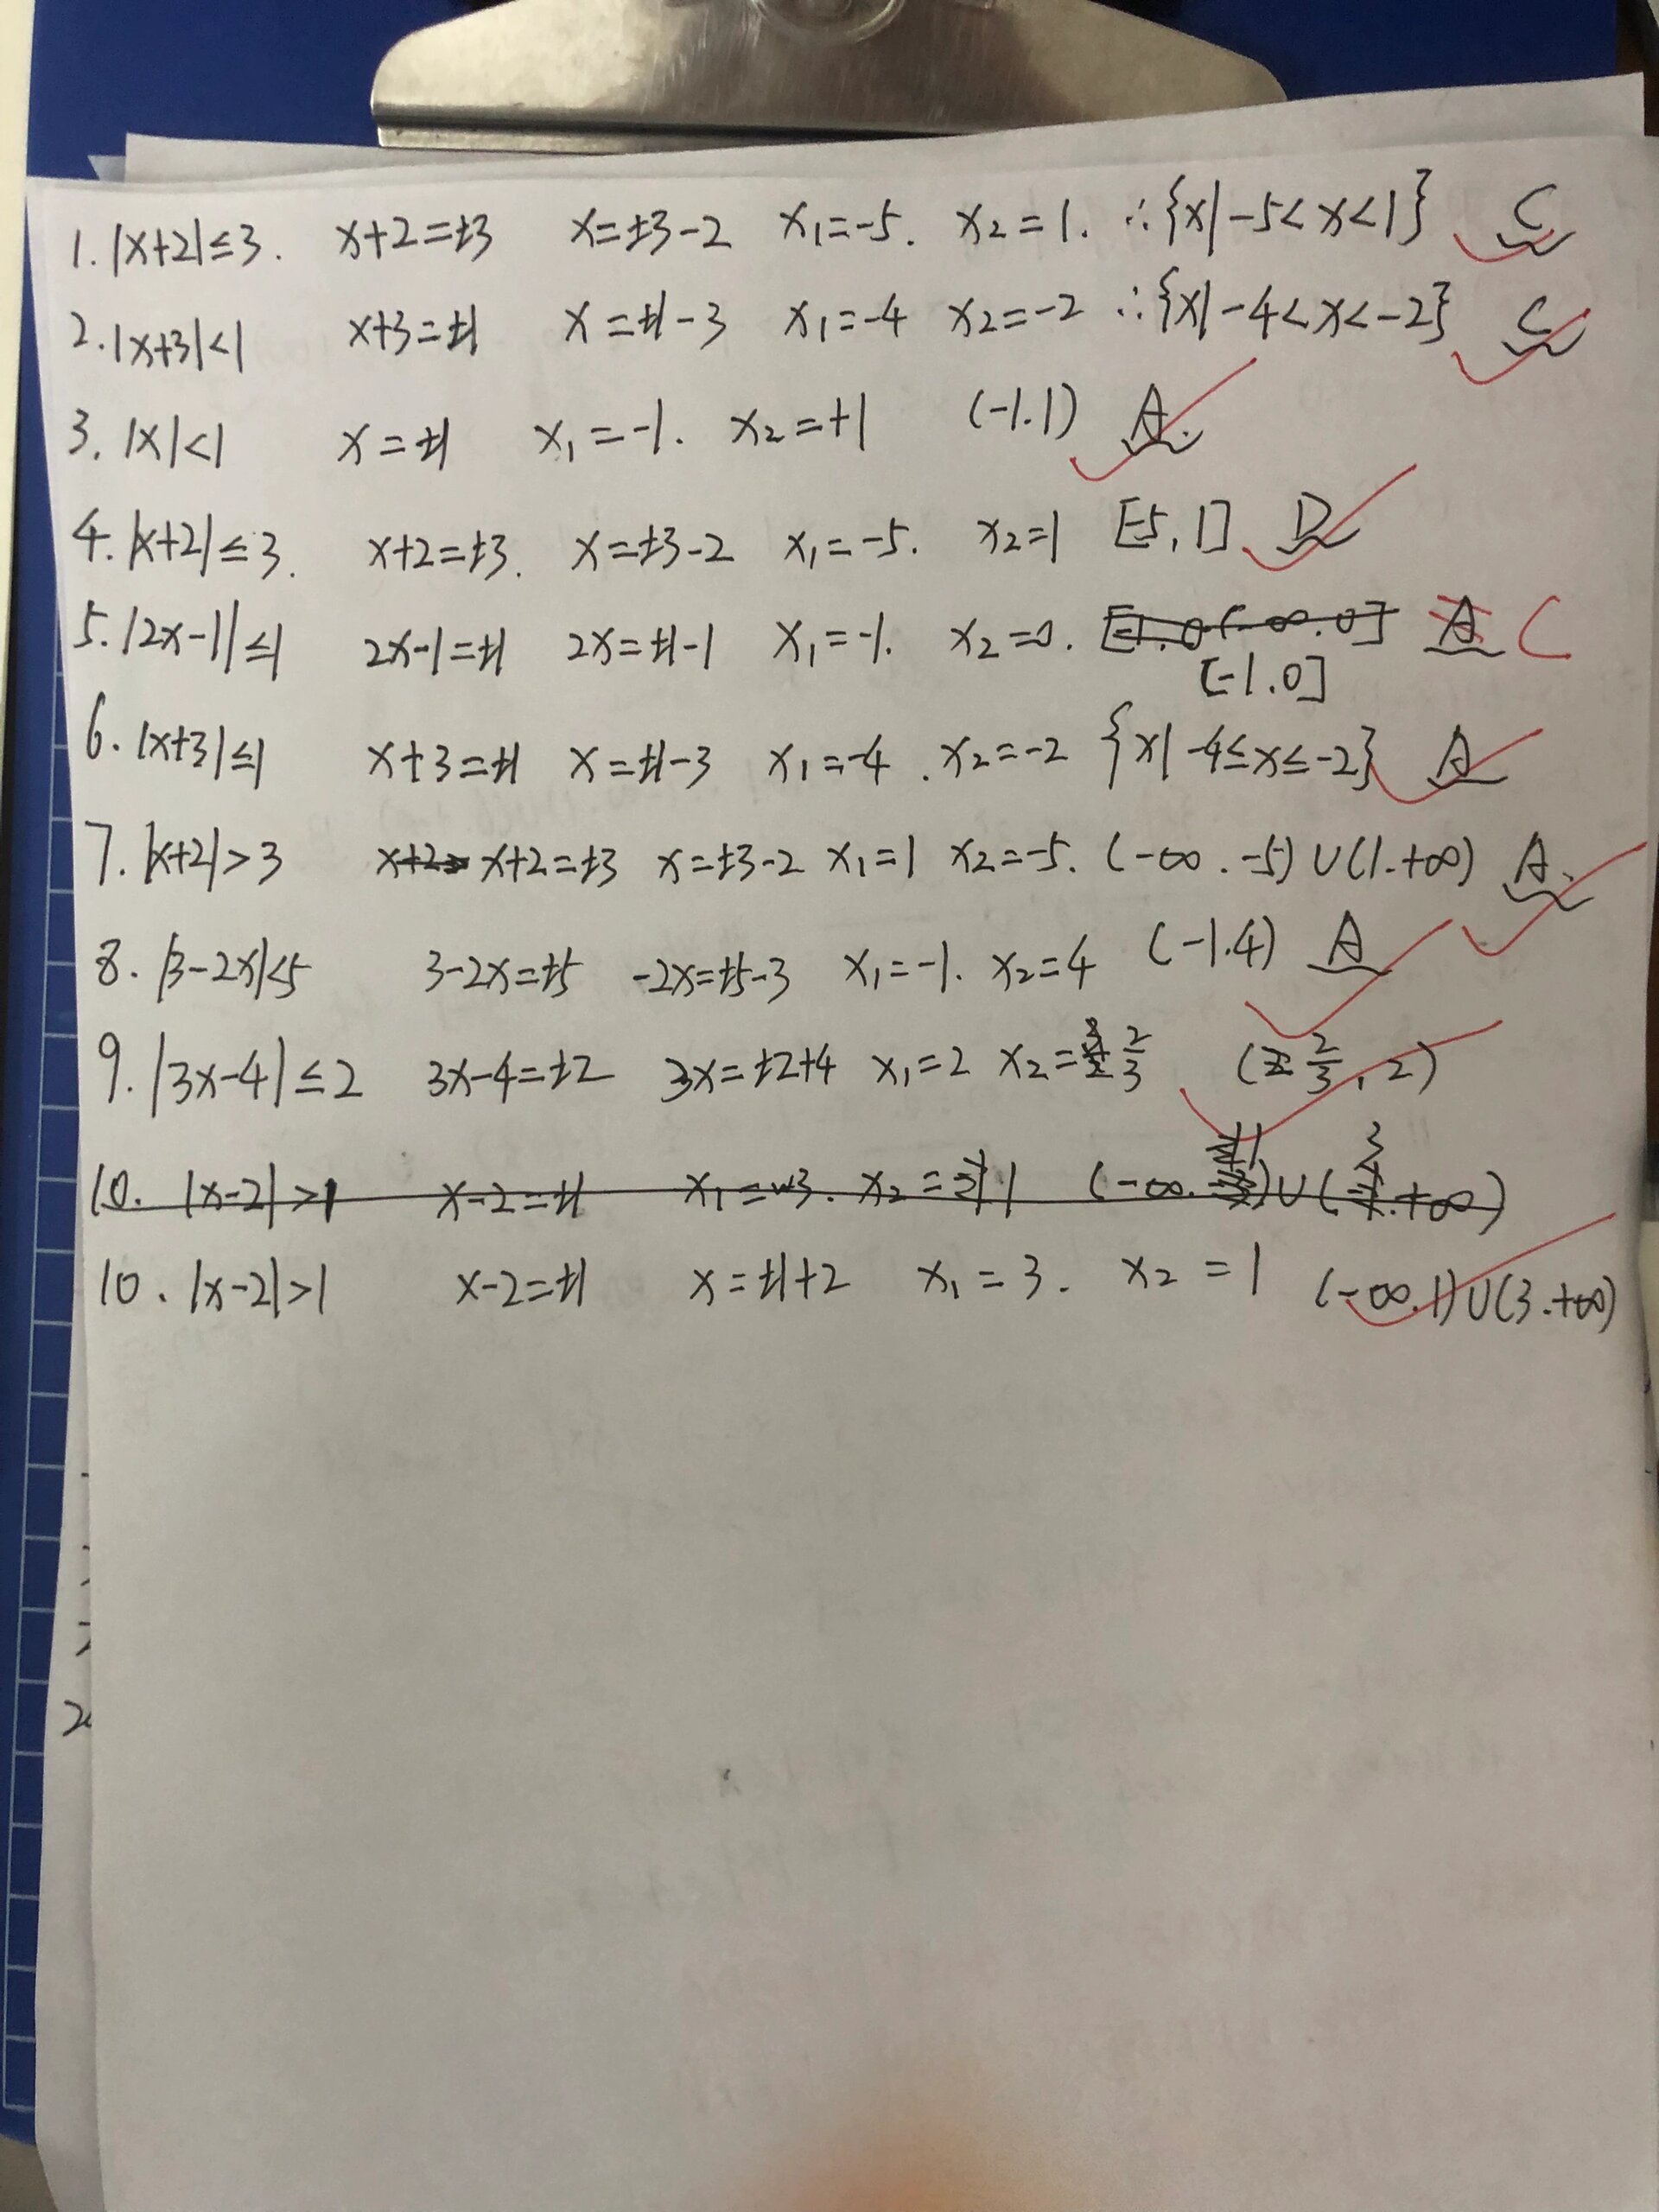 1. |x+2|≤3. x+2=±3 x=±3-2 x₁=-5. x₂=1. ∴{x|-5<x<1} C
2. |x+3|<1 x+3=±1 x=±1-3 x₁=-4 x₂=-2 ∴{x|-4<x<-2} C
3. |x|<1 x=±1 x₁=-1. x₂=+1 (-1.1) A.
4. |x+2|≤3. x+2=±3. x=±3-2 x₁=-5. x₂=1 [-5,1] D
5. |2x-1|≤1 2x-1=±1 2x=±1-1 x₁=-1. x₂=0. A C
[-1.0]
6. |x+3|≤1 x+3=±1 x=±1-3 x₁=-4. x₂=-2 {x|-4≤x≤-2} A
7. |x+2|>3 x+2= x+2=±3 x=±3-2 x₁=1 x₂=-5. (-∞.-5)∪(1.+∞) A.
8. |3-2x|<5 3-2x=±5 -2x=±5-3 x₁=-1. x₂=4 (-1.4) A
9. |3x-4|≤2 3x-4=±2 3x=±2+4 x₁=2 x₂=2/3 (2/3, 2)
10. |x-2|>1 x-2=±1 x₁=3. x₂=1 (-∞. 1)∪(3.+∞)
10. |x-2|>1 x-2=±1 x=±1+2 x₁=3. x₂=1 (-∞.1)∪(3.+∞)